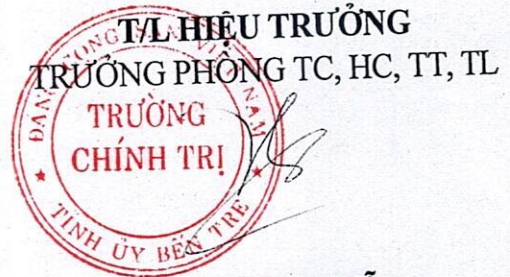 T/L HIỆU TRƯỞNG
TRƯỞNG PHÒNG TC, HC, TT, TL
ĐẢNG CỘNG SẢN VIỆT NAM
TRƯỜNG
CHÍNH TRỊ
TỈNH ỦY BẾN TRE